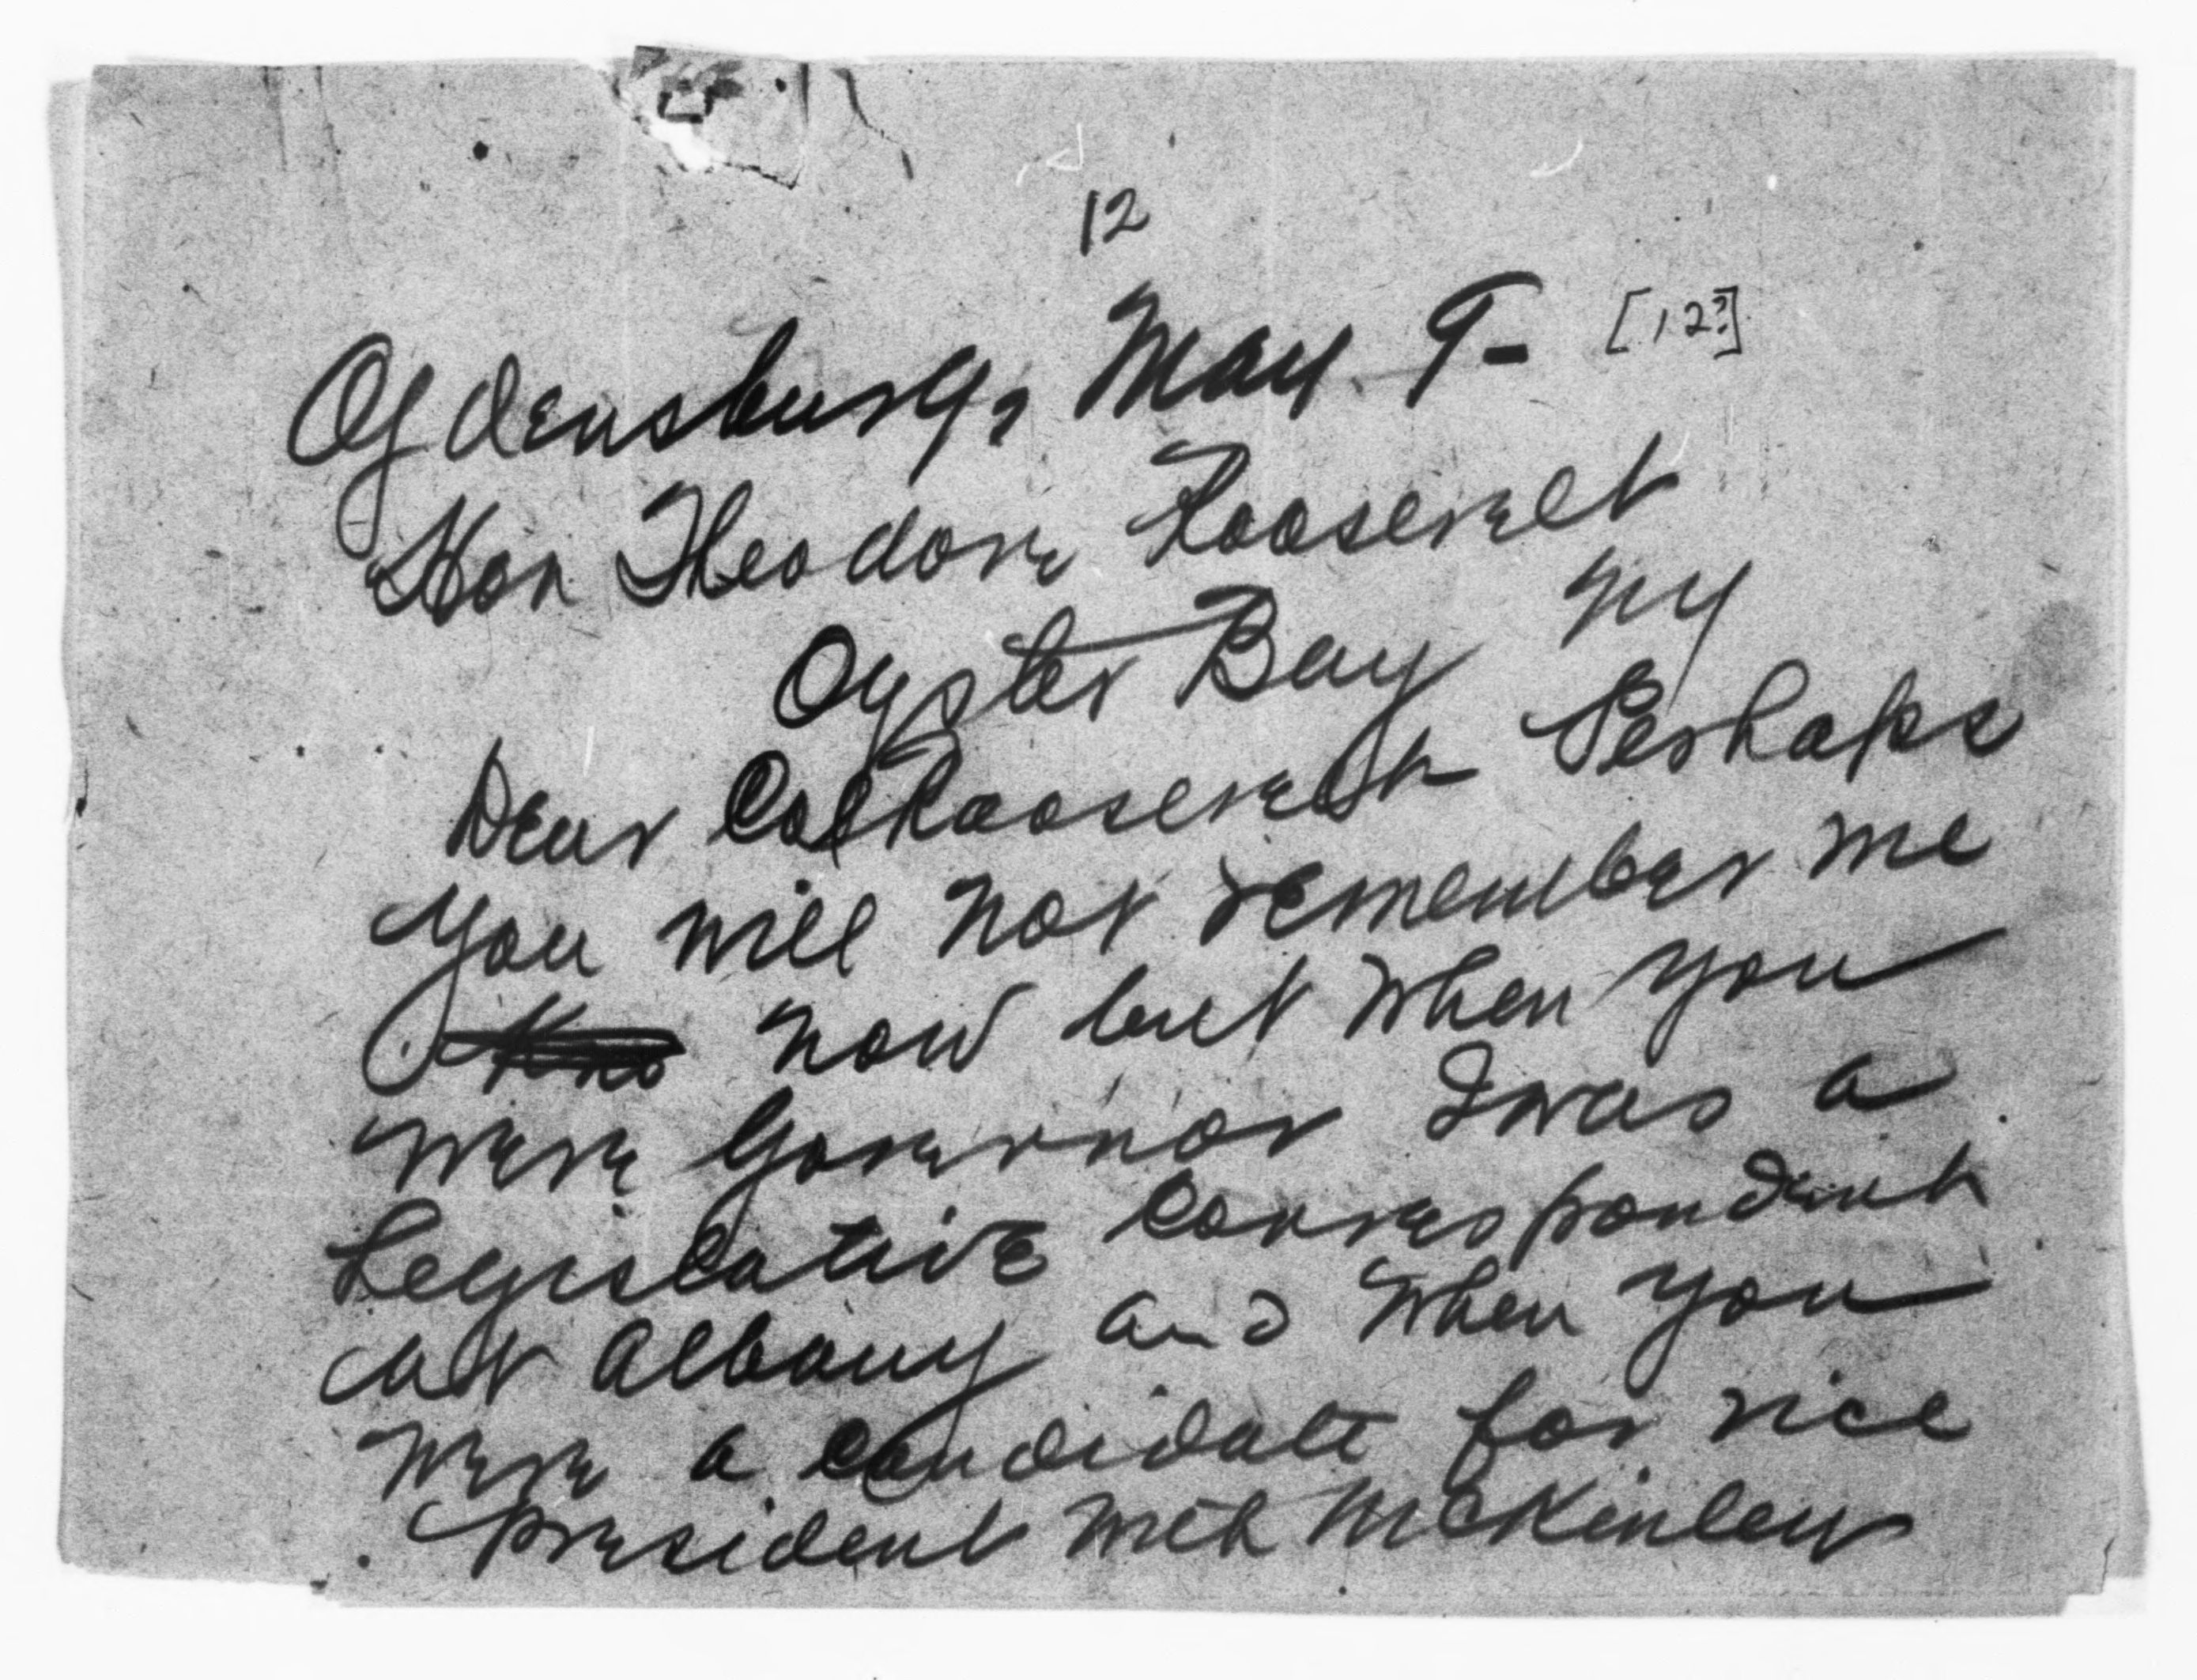 12
Ogdensburg, May 9- [12?]
Hon Theodore Roosevelt
Oyster Bay NY
Dear Col Roosevelt Perhaps
you will not remember me
now but when you
were Governor I was a
Legislative Correspondent
at Albany and when you
were a candidate for vice
president with McKinley